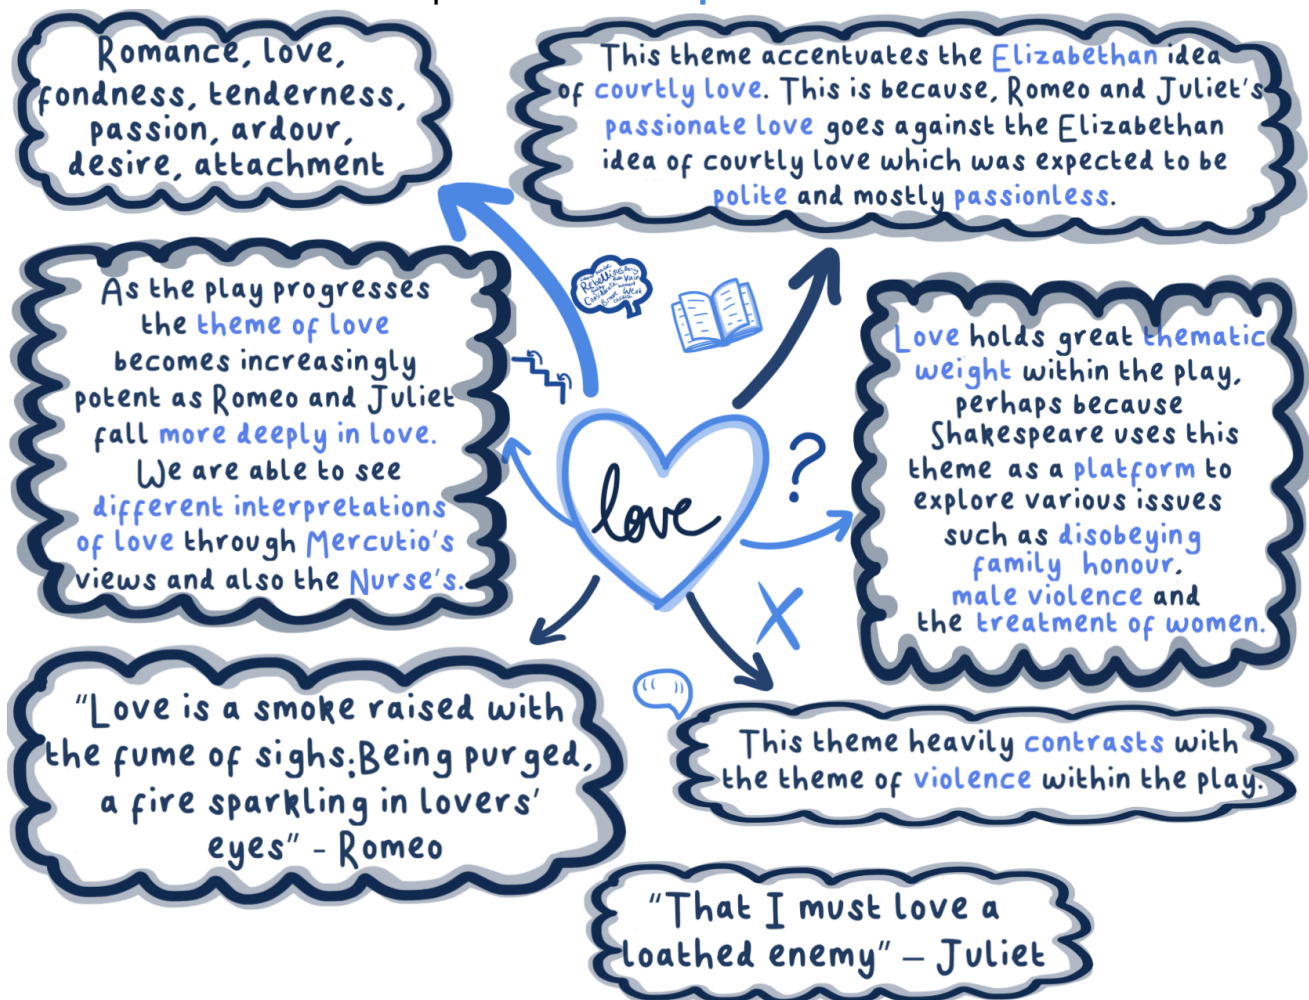 Romance, love,
fondness, tenderness,
passion, ardour,
desire, attachment
This theme accentuates the Elizabethan idea
of courtly love. This is because, Romeo and Juliet's
passionate love goes against the Elizabethan
idea of courtly love which was expected to be
polite and mostly passionless.
As the play progresses
the theme of love
becomes increasingly
potent as Romeo and Juliet
fall more deeply in love.
We are able to see
different interpretations
of love through Mercutio's
views and also the Nurse's.
Rebellious
love
?
Love holds great thematic
weight within the play,
perhaps because
Shakespeare uses this
theme as a platform to
explore various issues
such as disobeying
family honour.
male violence and
the treatment of women.
X
"Love is a smoke raised with
the fume of sighs;Being purged,
a fire sparkling in lovers'
eyes" - Romeo
This theme heavily contrasts with
the theme of violence within the play.
"That I must love a
loathed enemy" – Juliet